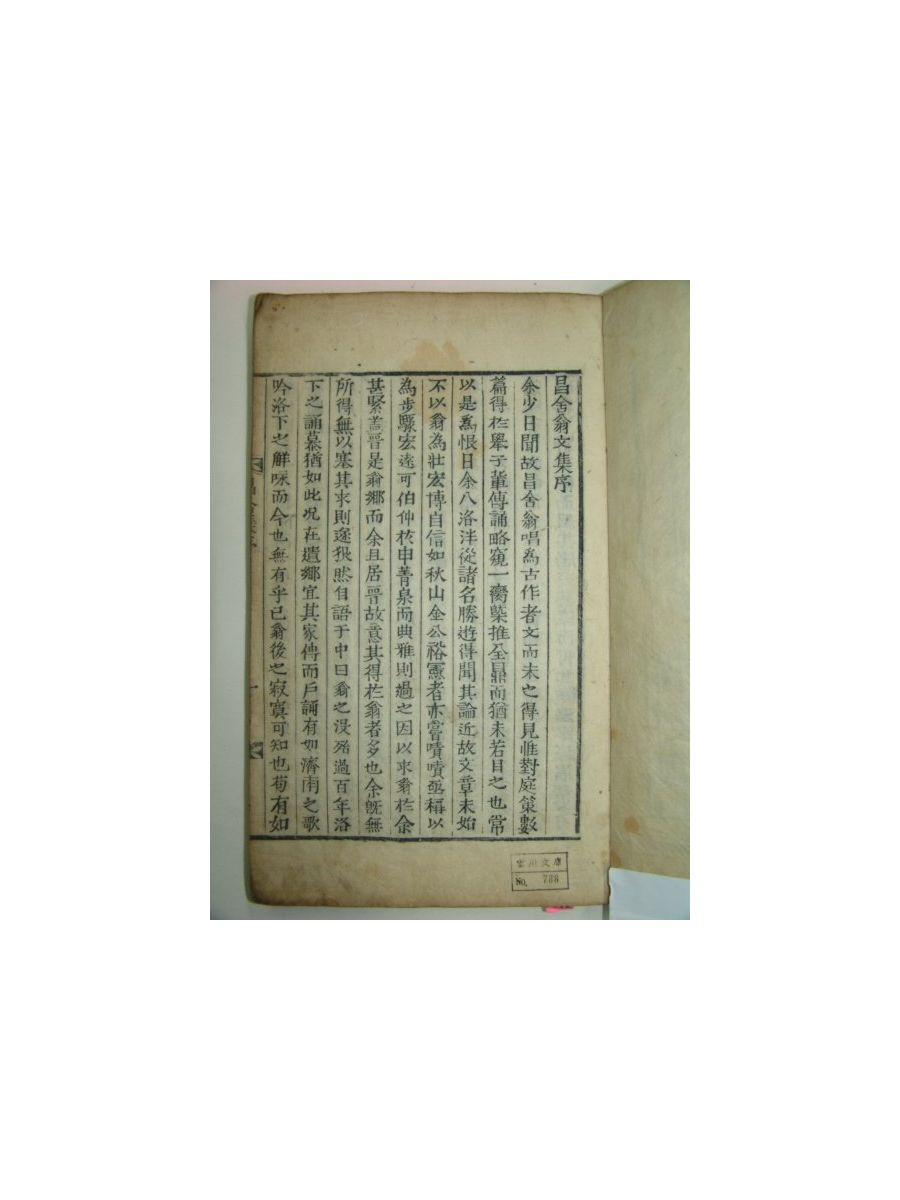 昌舍翁文集序
余少日聞故昌舍翁唱為古作者文而未之得見惟對庭策數
篇得於舉子輩傳誦略窺一臠槩推全鼎而猶未若目之也常
以是為恨日余入洛泮從諸名勝遊得聞其論近故文章未始
不以翁為壯宏博自信如秋山金公裕憲者亦嘗嘖嘖亟稱以
為步驟宏遠可伯仲於申菁泉而典雅則過之因以求翁於余
甚緊盖晉是翁鄉而余且居晉故意其得於翁者多也余旣無
所得無以塞其求則遂然自語于中曰翁之沒殆過百年洛
下之誦慕猶如此况在遺鄉宜其家傳而戶誦有如濟南之歌
吟洛下之鮮咏而今也無有乎已翁後之寂寞可知也苟有如
一
雲川文庫
No. 788